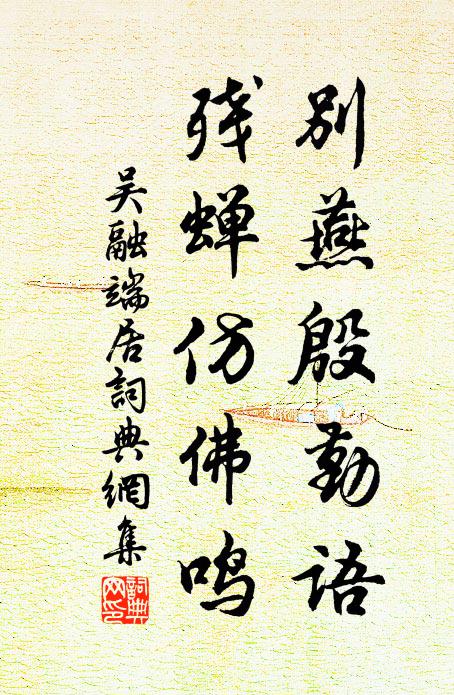 别燕殷勤语
残蝉仿佛鸣
吴融端居詞典網集
詞典